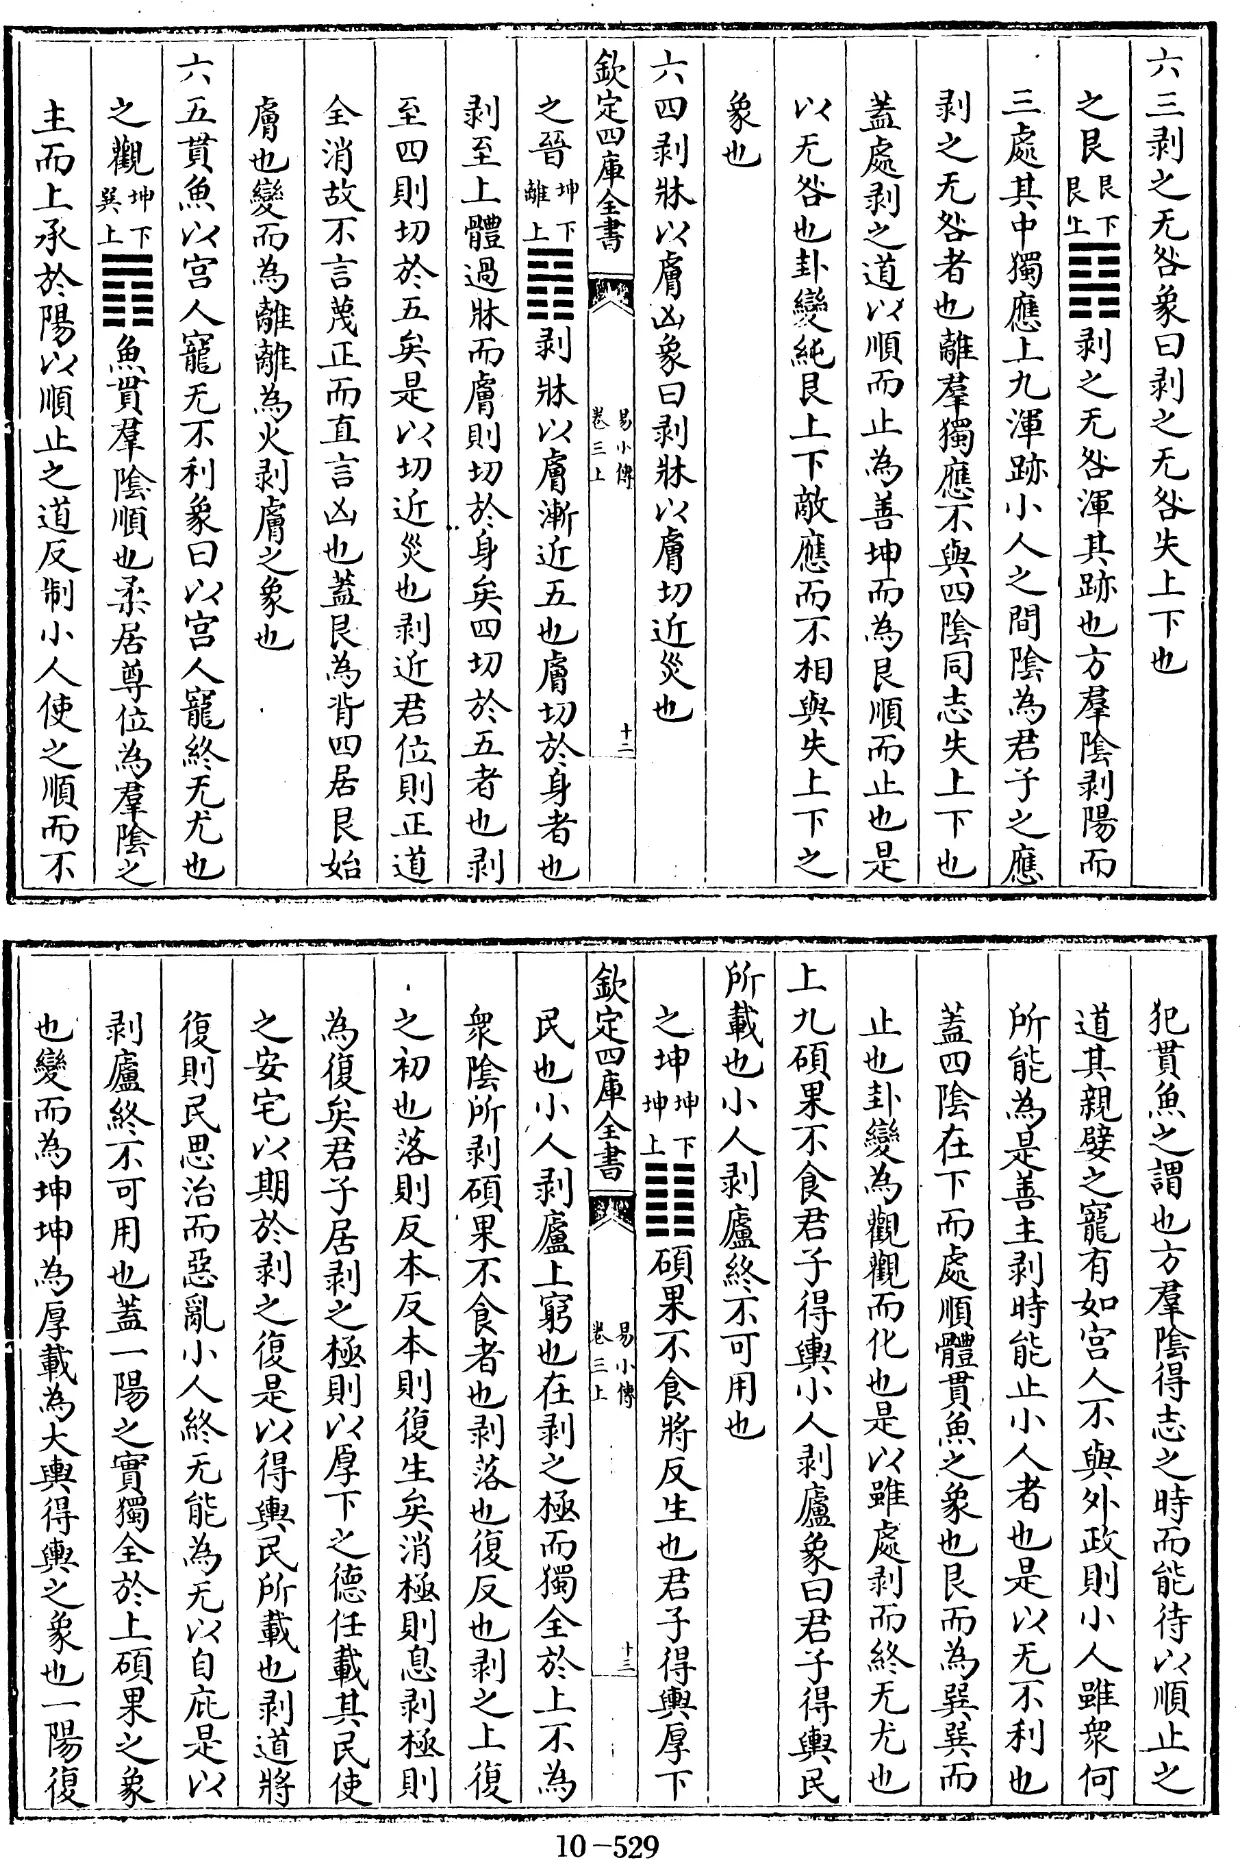 六三剥之无咎象曰剥之无咎失上下也
之艮艮下艮上剥之无咎渾其跡也方羣隂剥陽而
三處其中獨應上九渾跡小人之間隂為君子之應
剥之无咎者也離羣獨應不與四隂同志失上下也
蓋處剥之道以順而止為善坤而為艮順而止也是
以无咎也卦變純艮上下敵應而不相與失上下之
象也
六四剥牀以膚凶象曰剥牀以膚切近災也
欽定四庫全書
易小傳
卷三上
十二
之晉坤下離上剥牀以膚漸近五也膚切於身者也
剥至上體過牀而膚則切於身矣四切於五者也剥
至四則切於五矣是以切近災也剥近君位則正道
全消故不言蔑正而直言凶也蓋艮為背四居艮始
膚也變而為離離為火剥膚之象也
六五貫魚以宫人寵无不利象曰以宫人寵終无尤也
之觀坤下巽上魚貫羣隂順也柔居尊位為羣隂之
主而上承於陽以順止之道反制小人使之順而不
犯貫魚之謂也方羣隂得志之時而能待以順止之
道其親嬖之寵有如宫人不與外政則小人雖衆何
所能為是善主剥時能止小人者也是以无不利也
蓋四隂在下而處順體貫魚之象也艮而為巽巽而
止也卦變為觀觀而化也是以雖處剥而終无尤也
上九碩果不食君子得輿小人剥廬象曰君子得輿民
所載也小人剥廬終不可用也
之坤坤下坤上碩果不食將反生也君子得輿厚下
欽定四庫全書
易小傳
卷三上
十三
民也小人剥廬上窮也在剥之極而獨全於上不為
衆隂所剥碩果不食者也剥落也復反也剥之上復
之初也落則反本反本則復生矣消極則息剥極則
為復矣君子居剥之極則以厚下之德任載其民使
之安宅以期於剥之復是以得輿民所載也剥道將
復則民思治而惡亂小人終无能為无以自庇是以
剥廬終不可用也蓋一陽之實獨全於上碩果之象
也變而為坤坤為厚載為大輿得輿之象也一陽復
10-529